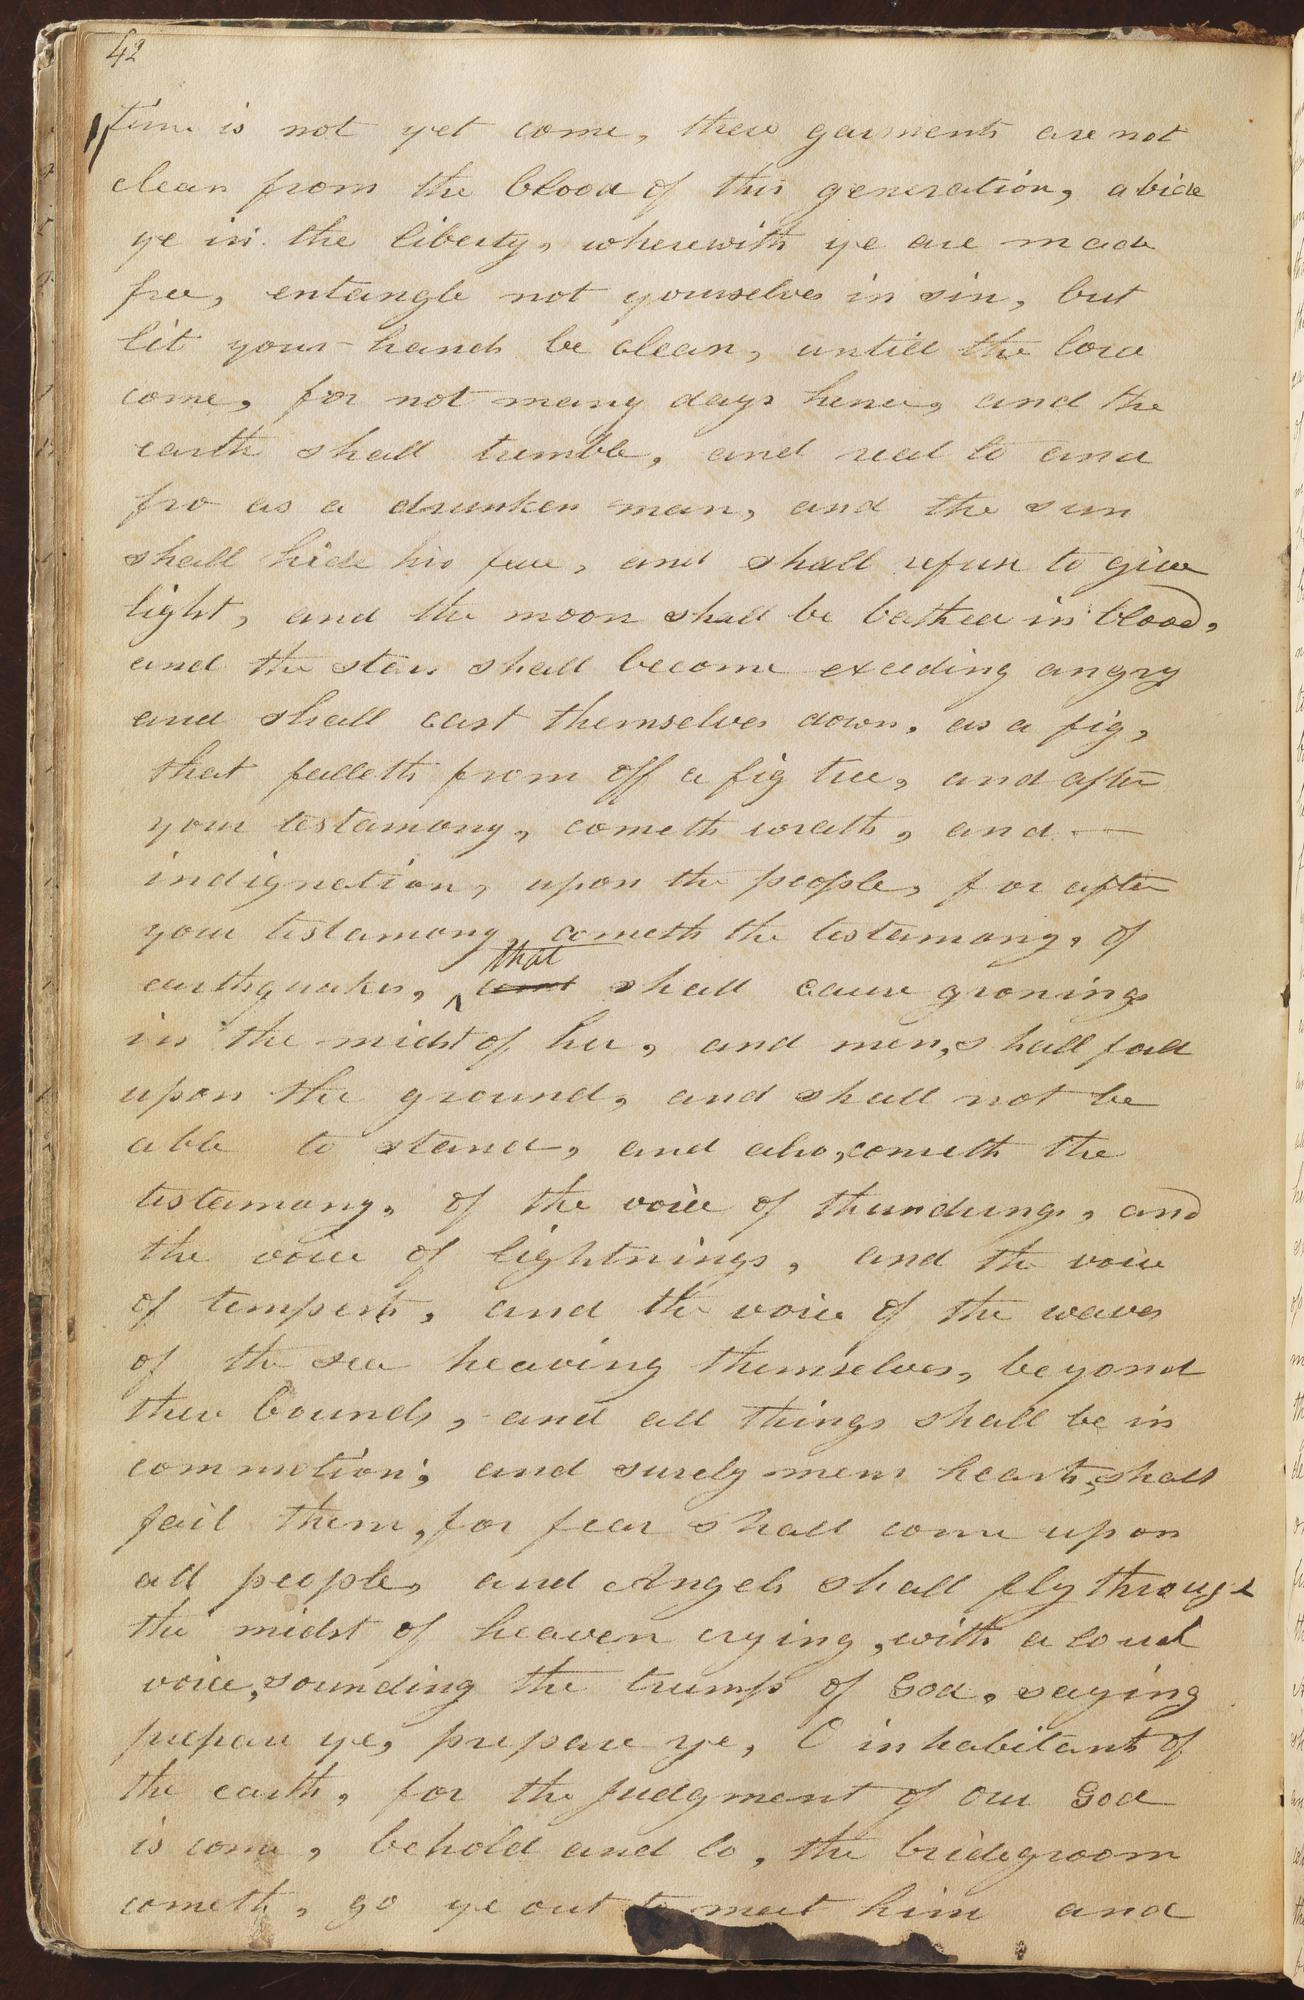 42
time is not yet come, there garments are not
clean from the blood of this generation, abide
ye in the liberty, wherewith ye are made
free, entangle not yourselves in sin, but
let your hands be clean, untill the lord
come, for not many days hence, and the
earth shall tremble, and reel to and
fro as a drunken man, and the sun
shall hide his face, and shall refuse to give
light, and the moon shall be bathed in blood,
and the stars shall become exceding angry
and shall cast themselves down, as a fig,
that falleth from off a fig tree, and after
your testamony, cometh wrath, and —
indignation, upon the people, for after
your testamony, cometh the testamony, of
earthquakes, that shall cause gronings
in the midst of her, and men, shall fall
upon the ground, and shall not be
able to stand, and also, cometh the
testamony, of the voice of thunderings, and
the voice of lightnings, and the voice
of tempests, and the voice of the waves
of the sea heaving themselves, beyond
their bounds, and all things shall be in
commotion; and surely mens hearts, shall
fail them, for fear shall come upon
all people, and Angels shall fly through
the midst of heaven crying, with a loud
voice, sounding the trump of God, saying
prepare ye, prepare ye, O inhabitants of
the earth, for the Judgment of our God
is come, behold and lo, the bridegroom
cometh, go ye out to meet him and